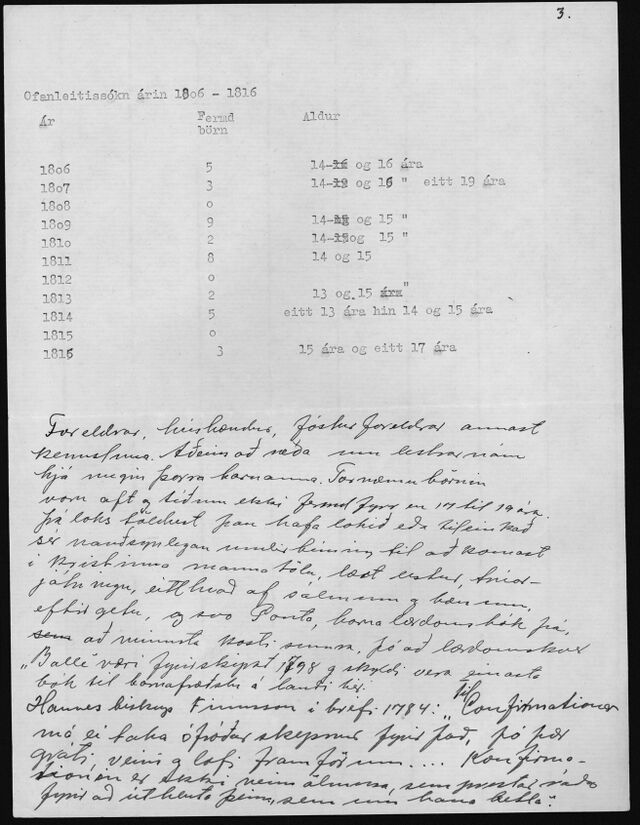 3.
Ofanleitissókn árin 1806 - 1816
Ár Fermd börn Aldur
1806 5 14-16 og 16 ára
1807 3 14-19 og 16 " eitt 19 ára
1808 0
1809 9 14- og 15 "
1810 2 14-15og 15 "
1811 8 14 og 15
1812 0
1813 2 13 og 15 ára "
1814 5 eitt 13 ára hin 14 og 15 ára
1815 0
1816 3 15 ára og eitt 17 ára
Foreldrar, húsbændur, fósturforeldrar annast
kennsluna. Aðeins að ræða um lestrarnám
hjá megin þorra barnanna. Tornæmu börnin
voru oft og tíðum ekki fermd fyrr en 17 til 19 ára.
Þá loks töldust þau hafa lokið eða tileinkað
sér nauðsynlegan undirbúning til að komast
í kristinna manna tölu, lært lestur, trúar-
játningu, eitthvað af sálmum og bænum,
eftir getu, og svo Ponta, barnalærdómsbók þá,
sem að minnsta kosti sunna, þó að lærdómskver
"Balle" væri fyrirskipað 1798 og skyldi vera einasta
bók til barnafræðslu á landi hér.
Hannes biskup Finnsson í bréfi 1784: "til Confirmationer
má ei taka ófróðar skepnur fyrir það, þó þær
gráti, veini og lofi framförum.... Konfirma-
tionen er ekki nein ölmusa, sem prestar ráða
fyrir að úthluta þeim, sem um hana betla".